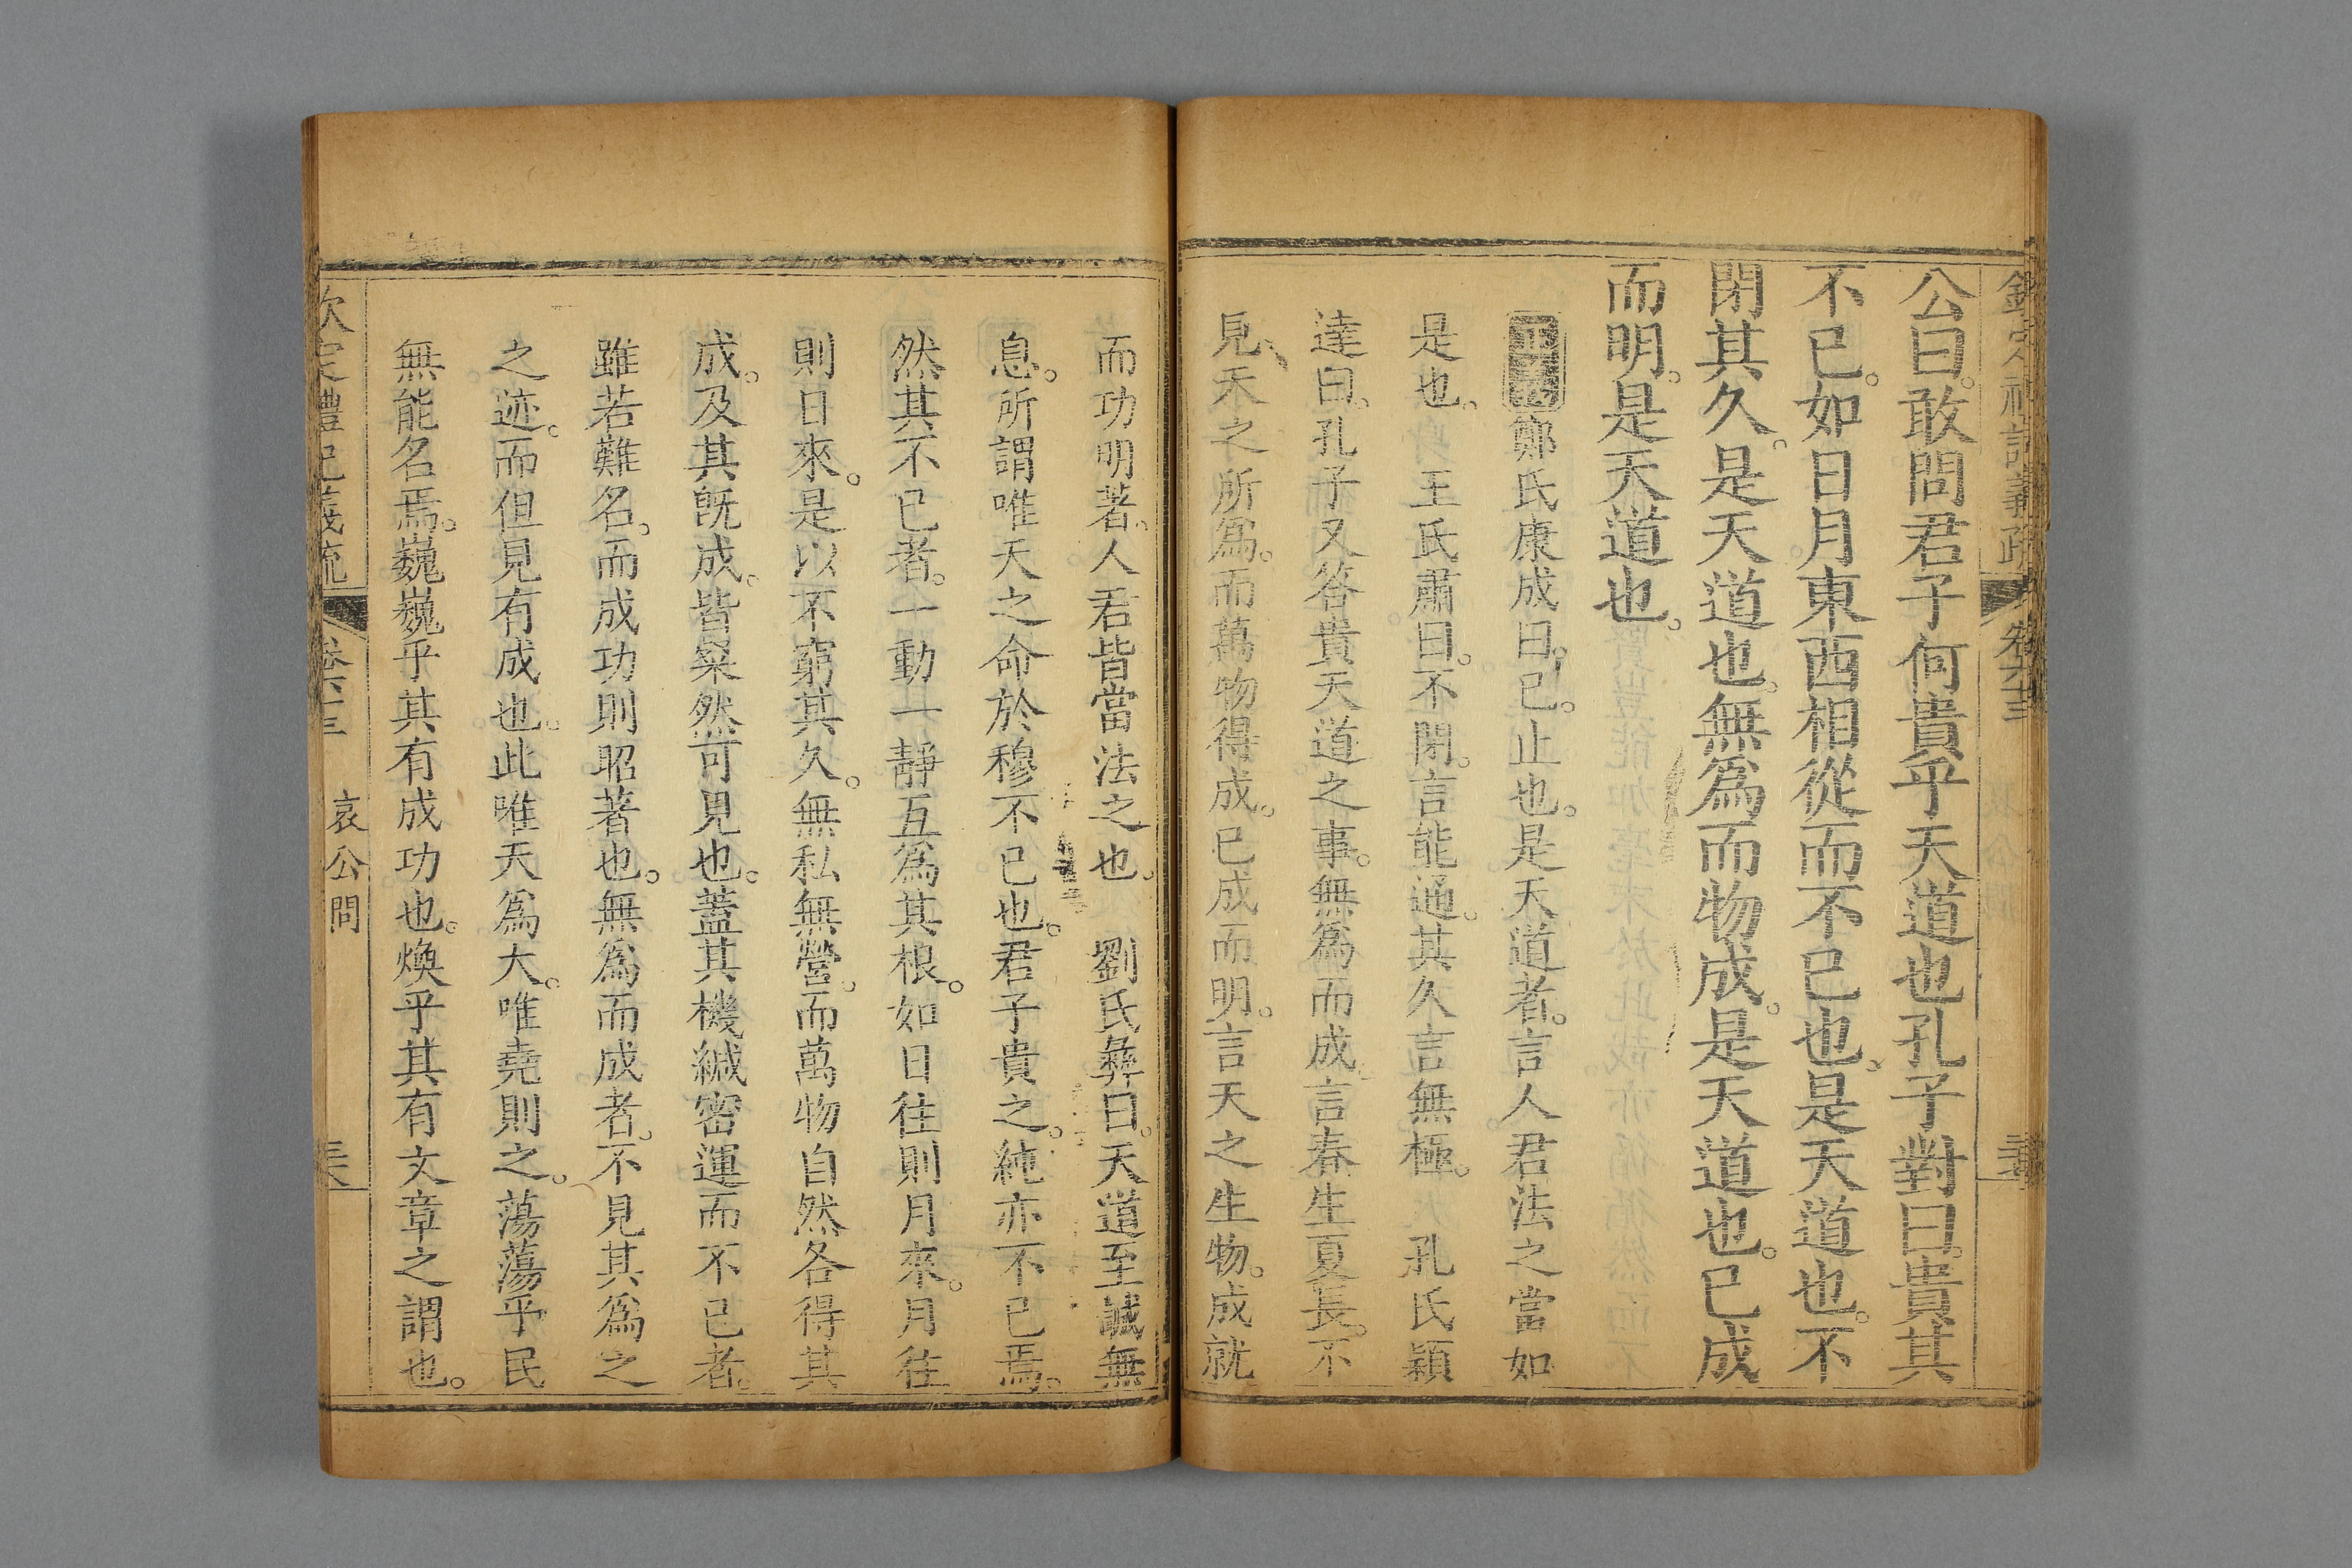 公曰。敢問君子何貴乎天道也孔子對曰。貴其
不已。如日月東西相從而不已也。是天道也。不
閉其久。是天道也。無爲而物成。是天道也。已成
而明。是天道也。
正義鄭氏康成曰。已。止也。是天道者。言人君法之當如
是也。 王氏肅曰。不閉。言能通。其久言無極。 孔氏穎
達曰。孔子又答貴天道之事。無爲而成言春生夏長。不
見天之所爲。而萬物得成。已成而明。言天之生物。成就
而功明著。人君皆當法之也。 劉氏彝曰。天道至誠無
息。所謂唯天之命於穆不已也。君子貴之。純亦不已焉。
然其不已者。一動一靜互爲其根。如日往則月來。月往
則日來。是以不窮其久。無私無營。而萬物自然各得其
成。及其旣成。皆粲然可見也。蓋其機緘密運而不已者。
雖若難名。而成功則昭著也。無爲而成者。不見其爲之
之迹。而但見有成也。此唯天爲大。唯堯則之。蕩蕩乎民
無能名焉。巍巍乎其有成功也。煥乎其有文章之謂也。
欽定禮記義疏 卷六十三 哀公問